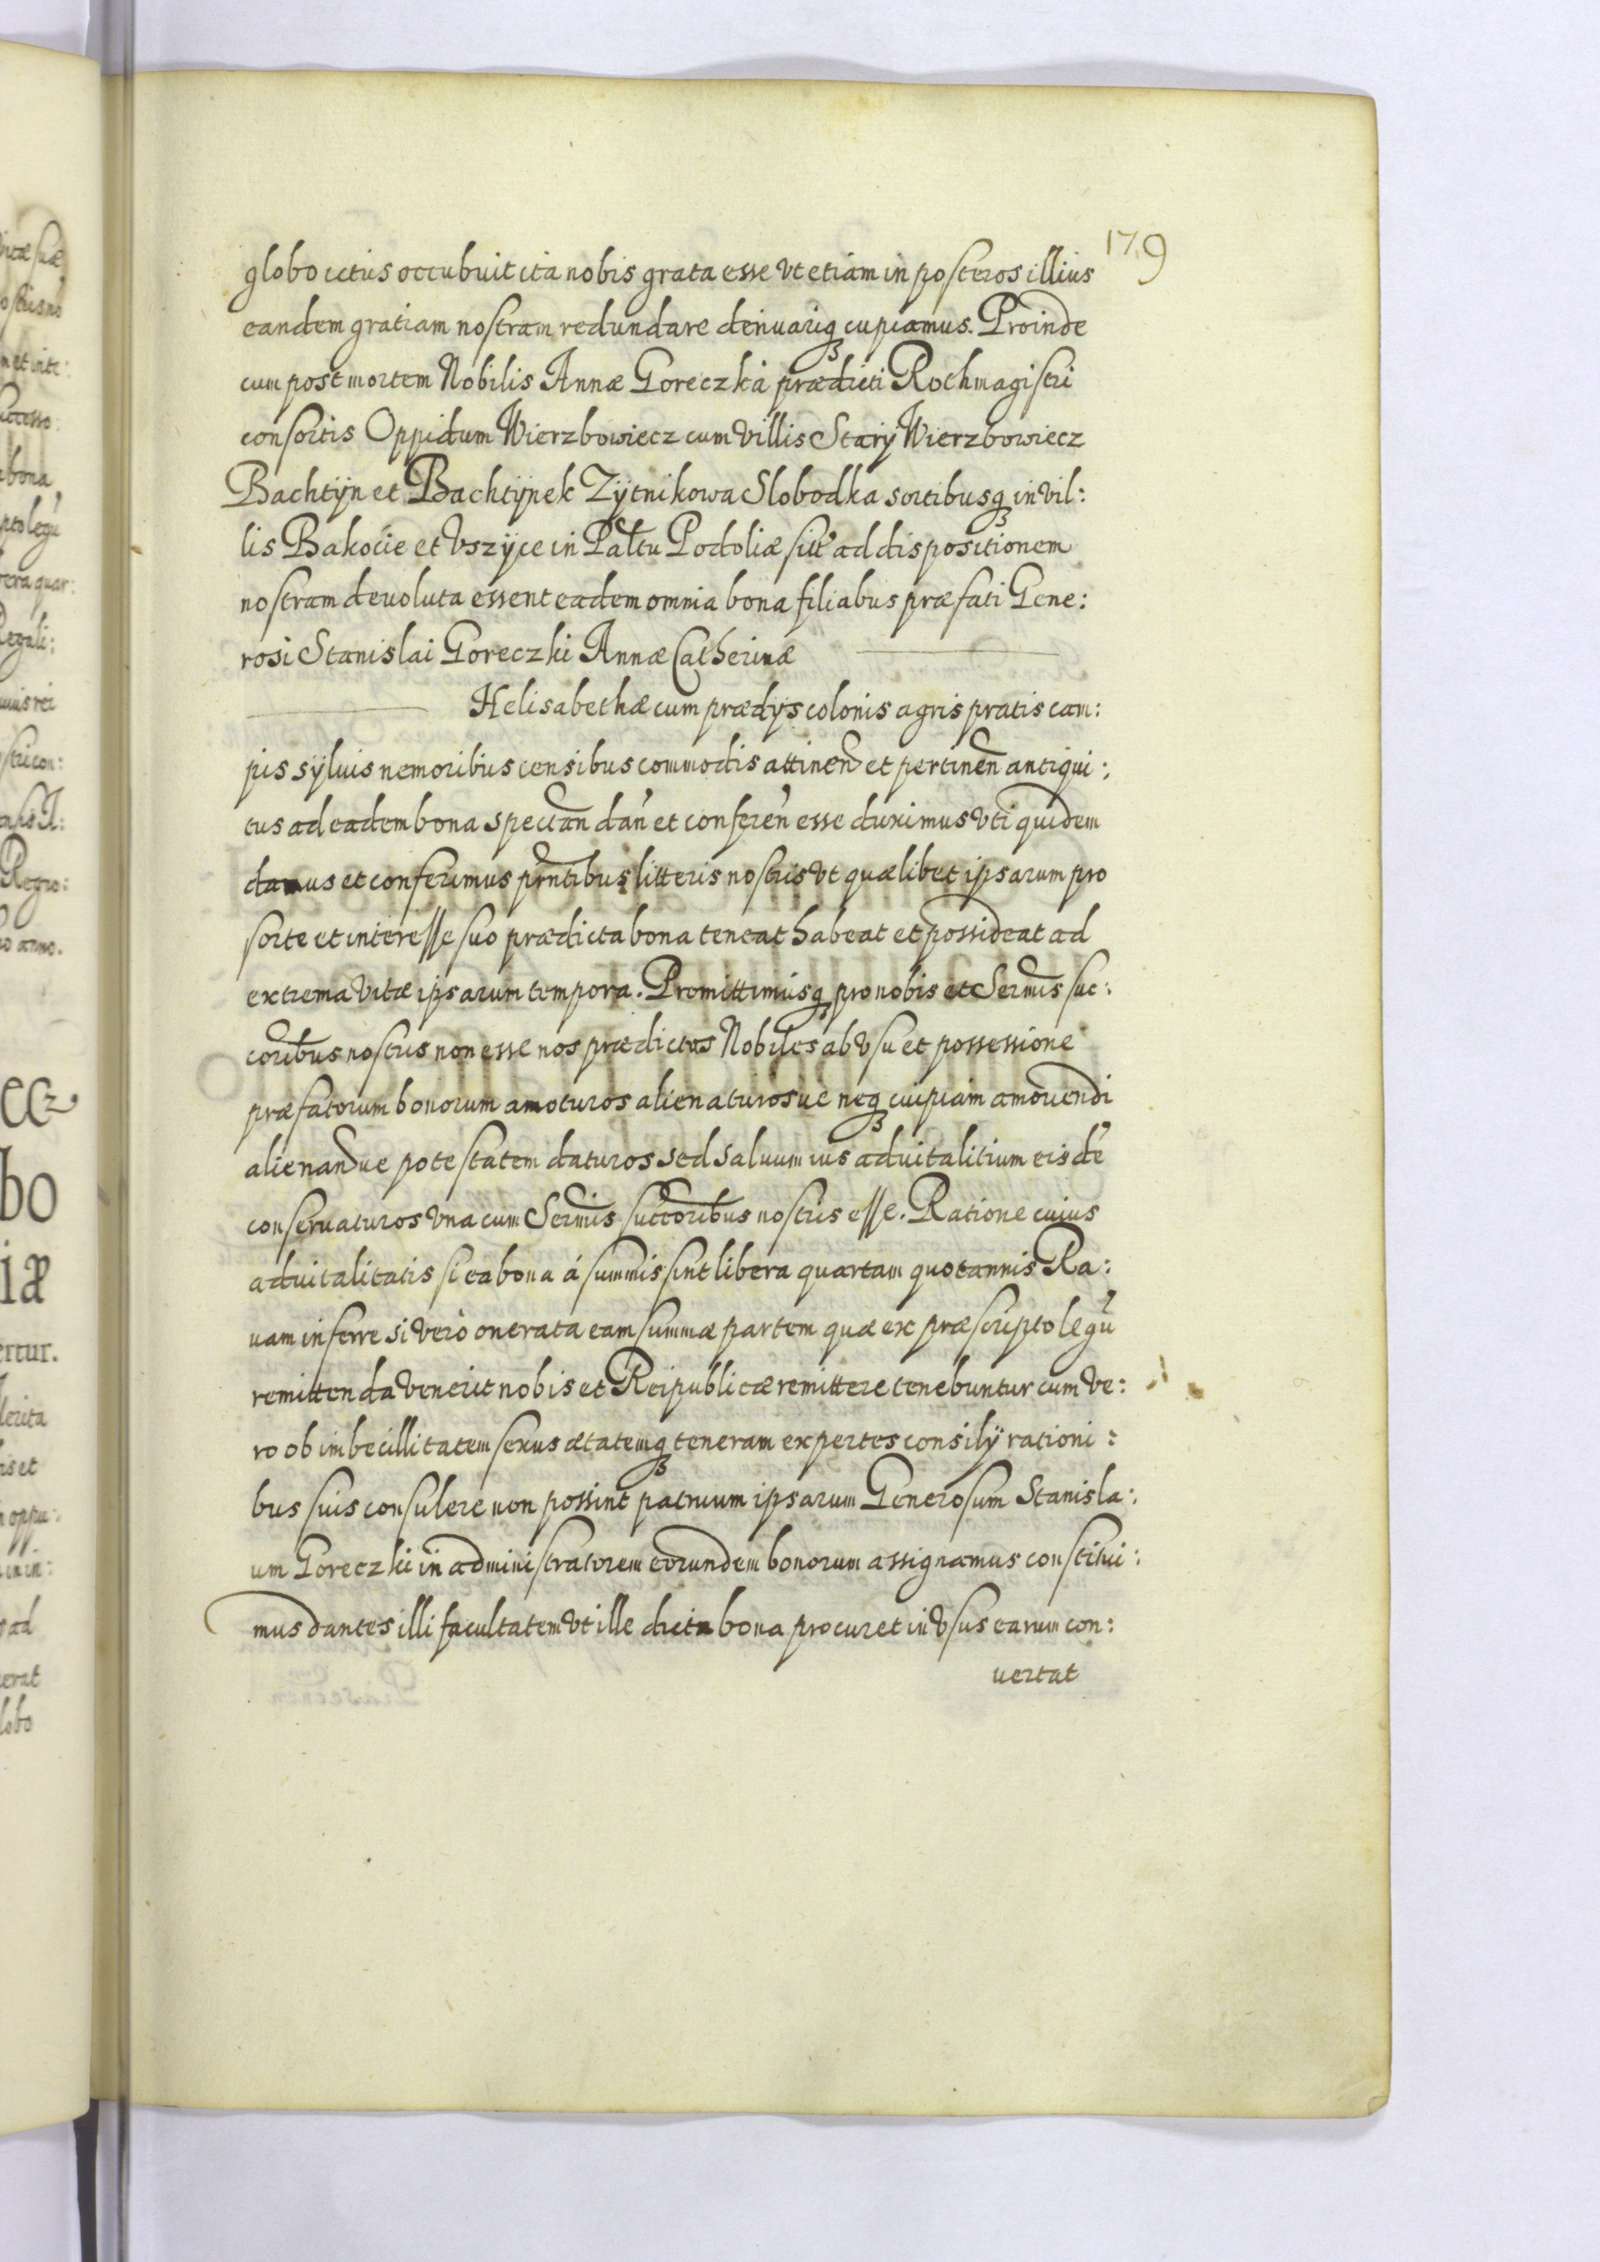 179
globo ictus occubuit ita nobis grata esse vt etiam in posteros illius
eandem gratiam nostram redundare deriuariqꝫ cupiamus. Proinde
cum post mortem Nobilis Annæ Goreczka prædicti Rothmagistri
consortis Oppidum Wierzbowiecz cum villis Starÿ Wierzbowiecz
Bachtÿn et Bachtÿnek Zÿtnikowa Slobodka sortibusqꝫ in vil:
lis Bakocie et Vszÿce in Pałtu Podoliæ sitt' ad dispositionem
nostram deuoluta essent eadem omnia bona filiabus præfati Gene:
rosi Stanislai Goreczki Annæ Catherinæ
Helisabethæ cum prædÿs colonis agris pratis cam:
pis sÿluis nemoribus censibus commodis attinen̄ et pertinen̄ antiqui:
tus ad eadem bona spectan̄ dan̄ et conferen̄ esse duximus vti quidem
damus et conferimus pn̄tibus litteris nostris vt quælibet ipsarum pro
sorte et interesse suo prædicta bona teneat habeat et possideat ad
extrema vitæ ipsarum tempora. Promittimusqꝫ pro nobis et Sermis suc:
coribus nostris non esse nos prædictos Nobiles ab vsu et possessione
præfatorum bonorum amoturos alienaturosue neqꝫ cuipiam amouendi
alienan̄ue potestatem daturos sed saluum ius aduitalitium eisdē
conseruaturos vna cum Sermis succoribus nostris esse. Ratione cuius
aduitalitatis si ea bona á summis sint libera quartam quotannis Ra:
uam inferre si verò onerata eam summæ partem quæ ex præscripto legū
remittenda venerit nobis et Reipublicæ remittere tenebuntur cum ve:
ro ob imbecillitatem sexus ætatemqꝫ teneram expertes consilÿ rationi:
bus suis consulere non possint patruum ipsarum Generosum Stanisla:
um Goreczki in administratorem eorundem bonorum assignamus constitui:
mus dantes illi facultatem vt ille dicta bona procuret in vsus earum con:
uertat